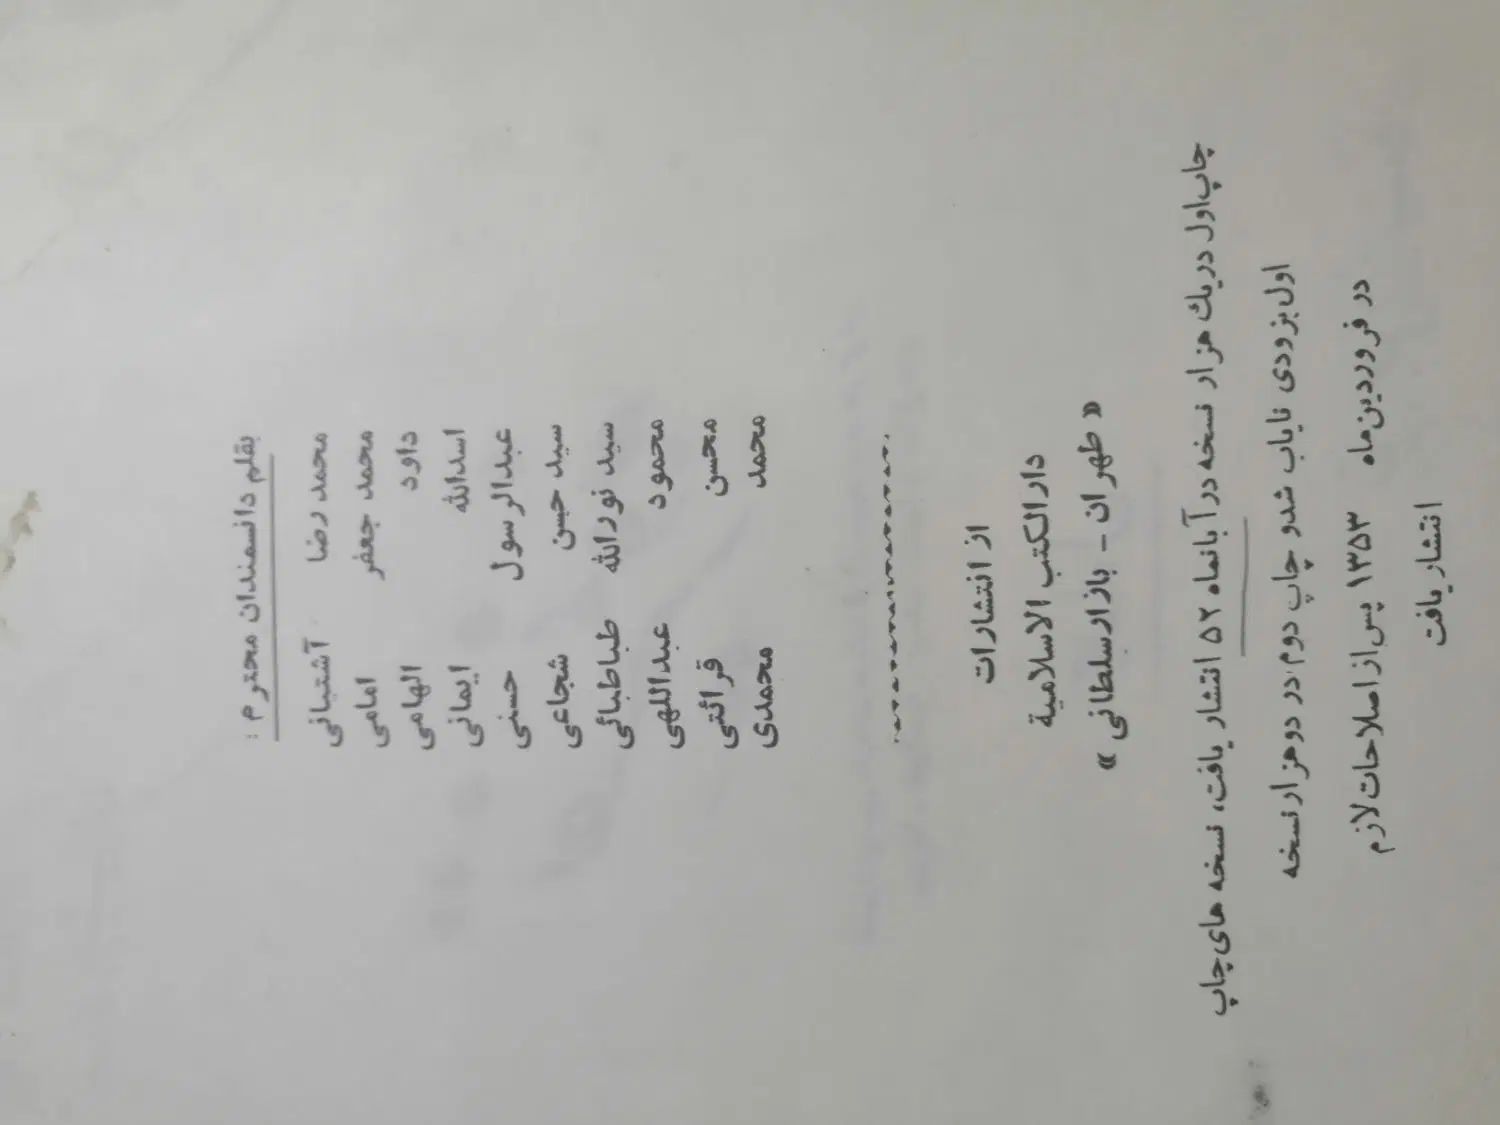 بقلم دانشمندان محترم :
محمد رضا آشتیانی
محمد جعفر امامی
داود الهامی
اسدالله ایمانی
عبدالرسول حسنی
سید حسن شجاعی
سید نورالله طباطبائی
محمود عبداللهی
محسن قرائتی
محمد محمدی
از انتشارات
دارالکتب الاسلامیة
« طهران - بازار سلطانی »
چاپ اول در یك هزار نسخه در آبانماه ۵۲ انتشار یافت، نسخه های چاپ
اول بزودی نایاب شد و چاپ دوم در دو هزار نسخه
در فروردین ماه ۱۳۵۳ پس از اصلاحات لازم
انتشار یافت